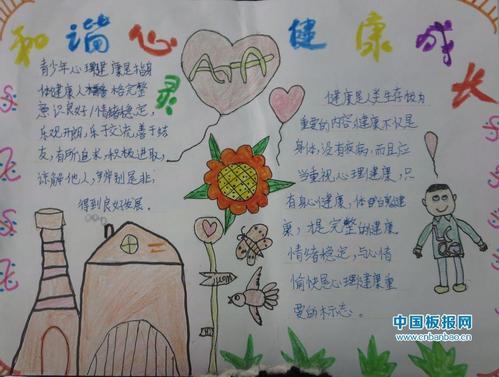 和谐心灵
健康成长
青少年心理健康是指身
体健康人格完整
意识良好/情绪稳定,
乐观开朗,乐于交流,善于结
友,有所追求,积极进取,
谅解他人,
得到良好发展。
健康是人类生存极为
重要的内容,健康不仅是
身体没有疾病,而且应
当重视心理健康,只
有身心健康,体
康,才是完整的健康
情绪稳定,与心情
愉快是心理健康重
要的标志。
中国板报网
www.cnbanbao.cn